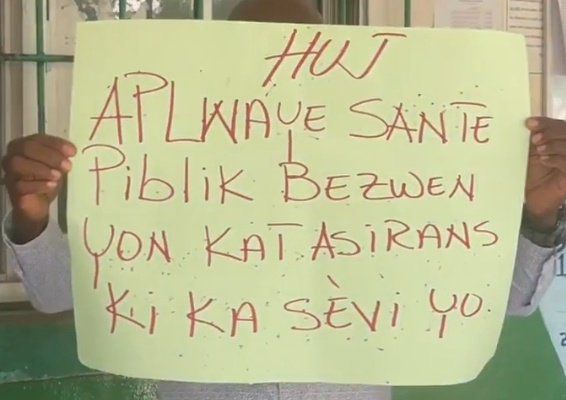 HUJ
APLWAYE SANTE
Piblik BEZWEN
YON KAT ASiRANS
Ki KA SÈVi YO